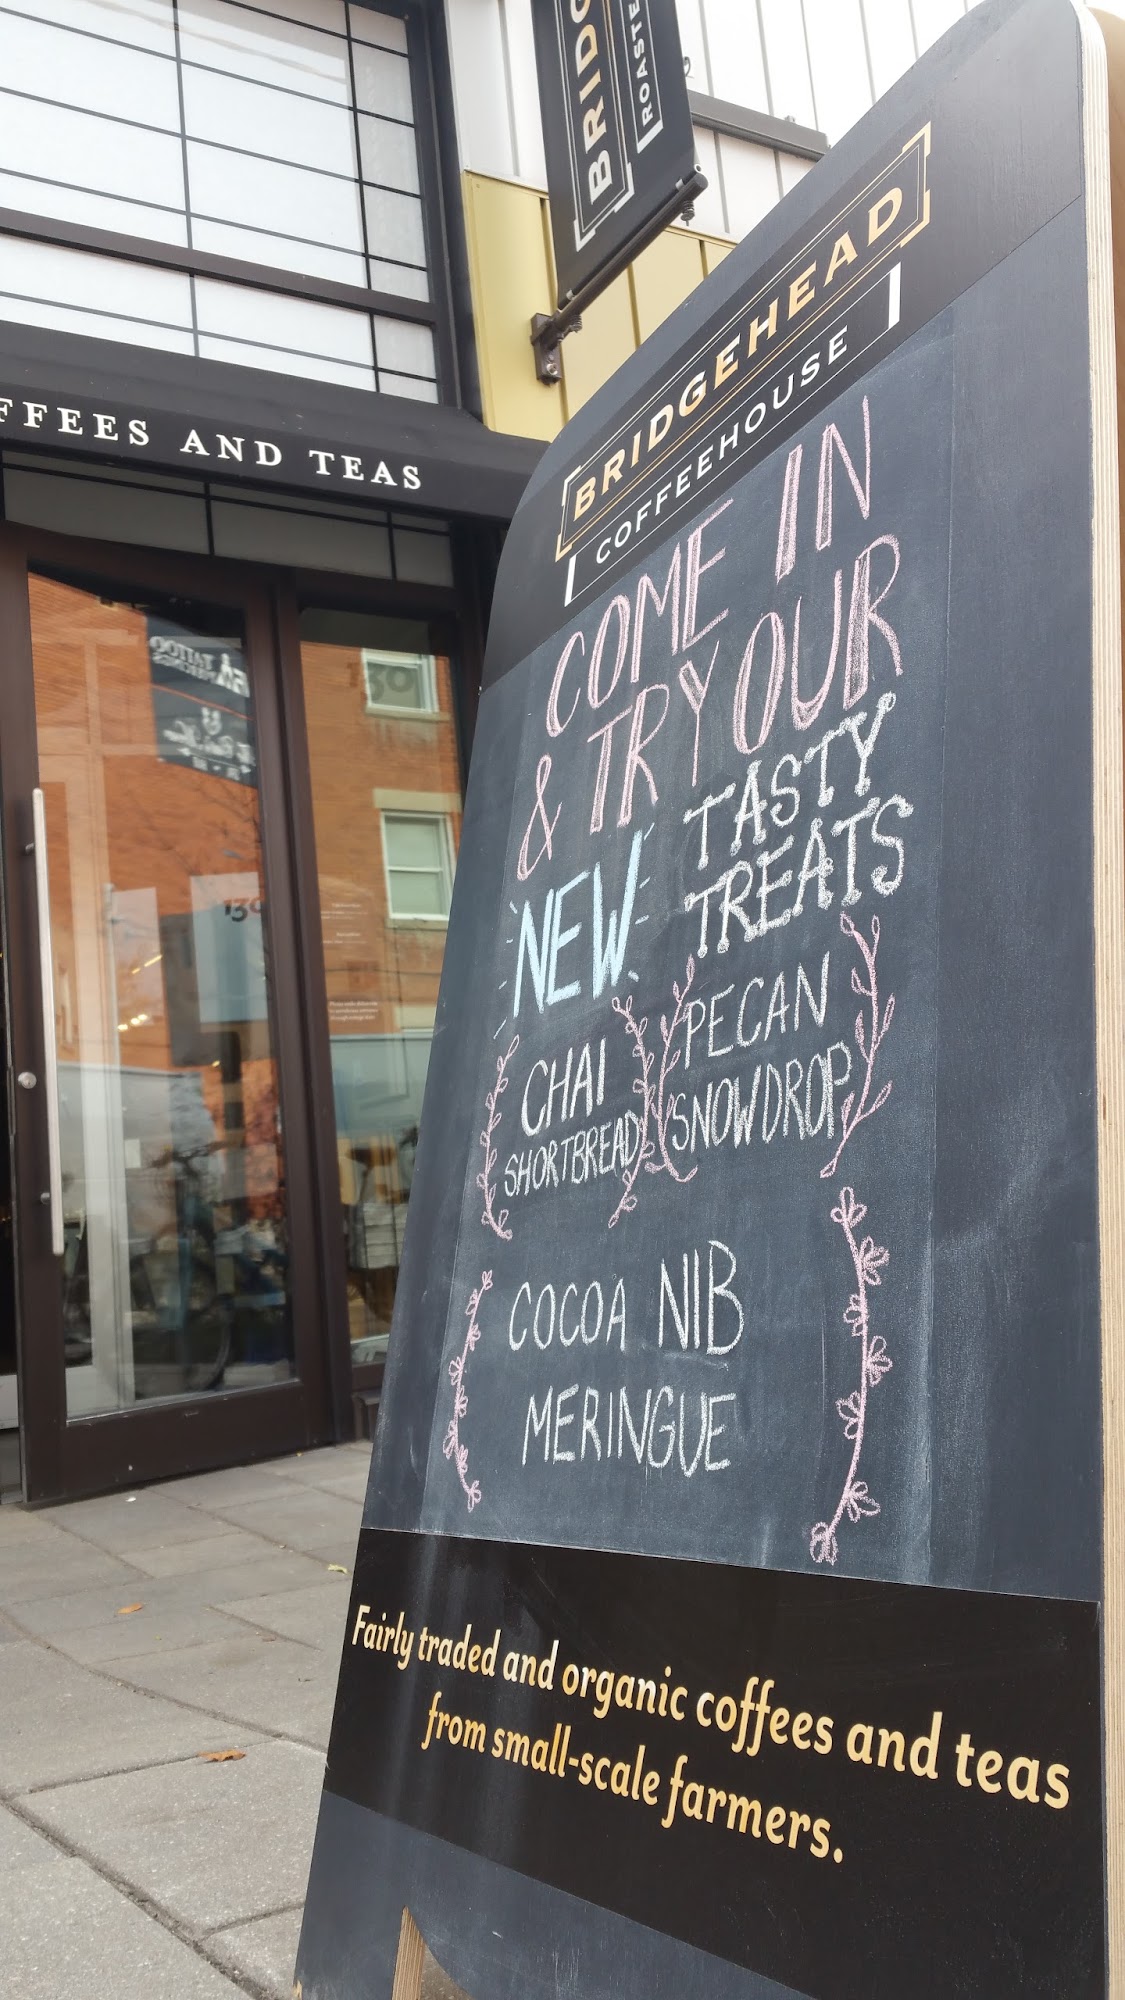 BRIDGEHEAD
COFFEEHOUSE
COME IN
& TRY OUR
NEW TASTY
TREATS
CHAI
SHORTBREAD
PECAN
SNOWDROP
COCOA NIB
MERINGUE
Fairly traded and organic coffees and teas
from small-scale farmers.
BRIDG
ROASTE
FFEES AND TEAS
130
130
TATTOO